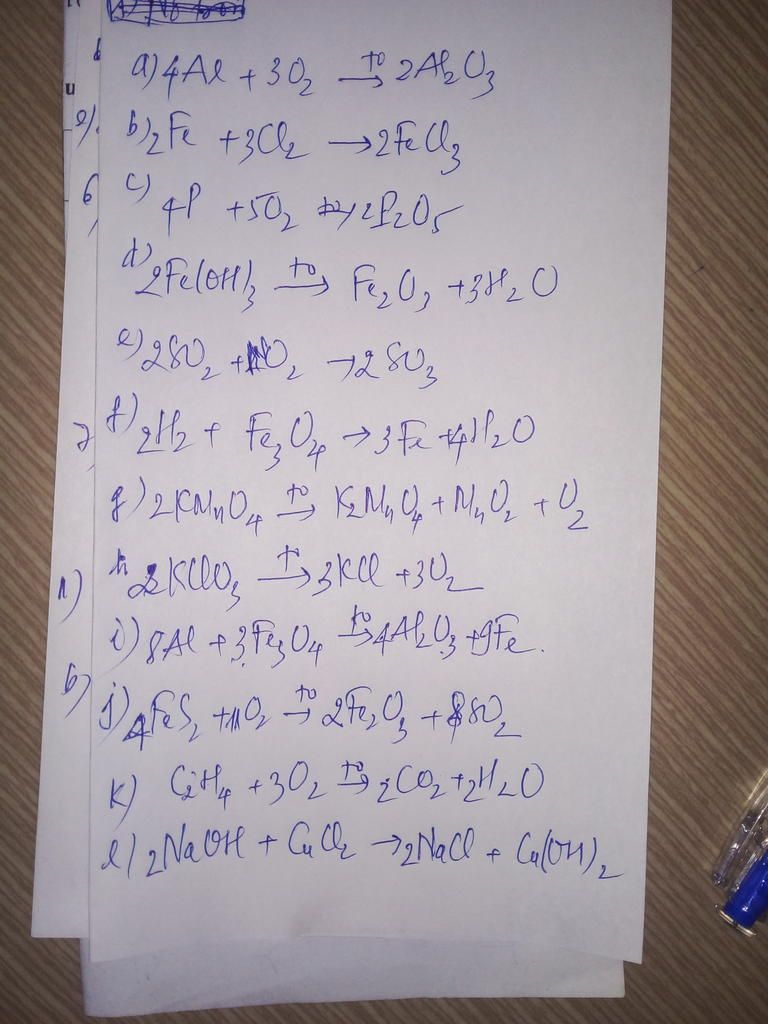 a) 4Al + 3O2 t⁰→ 2Al2O3
b) 2Fe + 3Cl2 → 2FeCl3
c) 4P + 5O2 → 2P2O5
d) 2Fe(OH)3 t⁰→ Fe2O3 + 3H2O
e) 2SO2 + O2 → 2SO3
f) 2H2 + Fe3O4 → 3Fe + 4H2O
g) 2KMnO4 t⁰→ K2MnO4 + MnO2 + O2
h 2KClO3 t⁰→ 3KCl + 3O2
i) 8Al + 3Fe3O4 t⁰→ 4Al2O3 + 9Fe.
j) 4FeS2 + 11O2 t⁰→ 2Fe2O3 + 8SO2
k) C2H4 + 3O2 t⁰→ 2CO2 + 2H2O
l) 2NaOH + CuCl2 → 2NaCl + Cu(OH)2